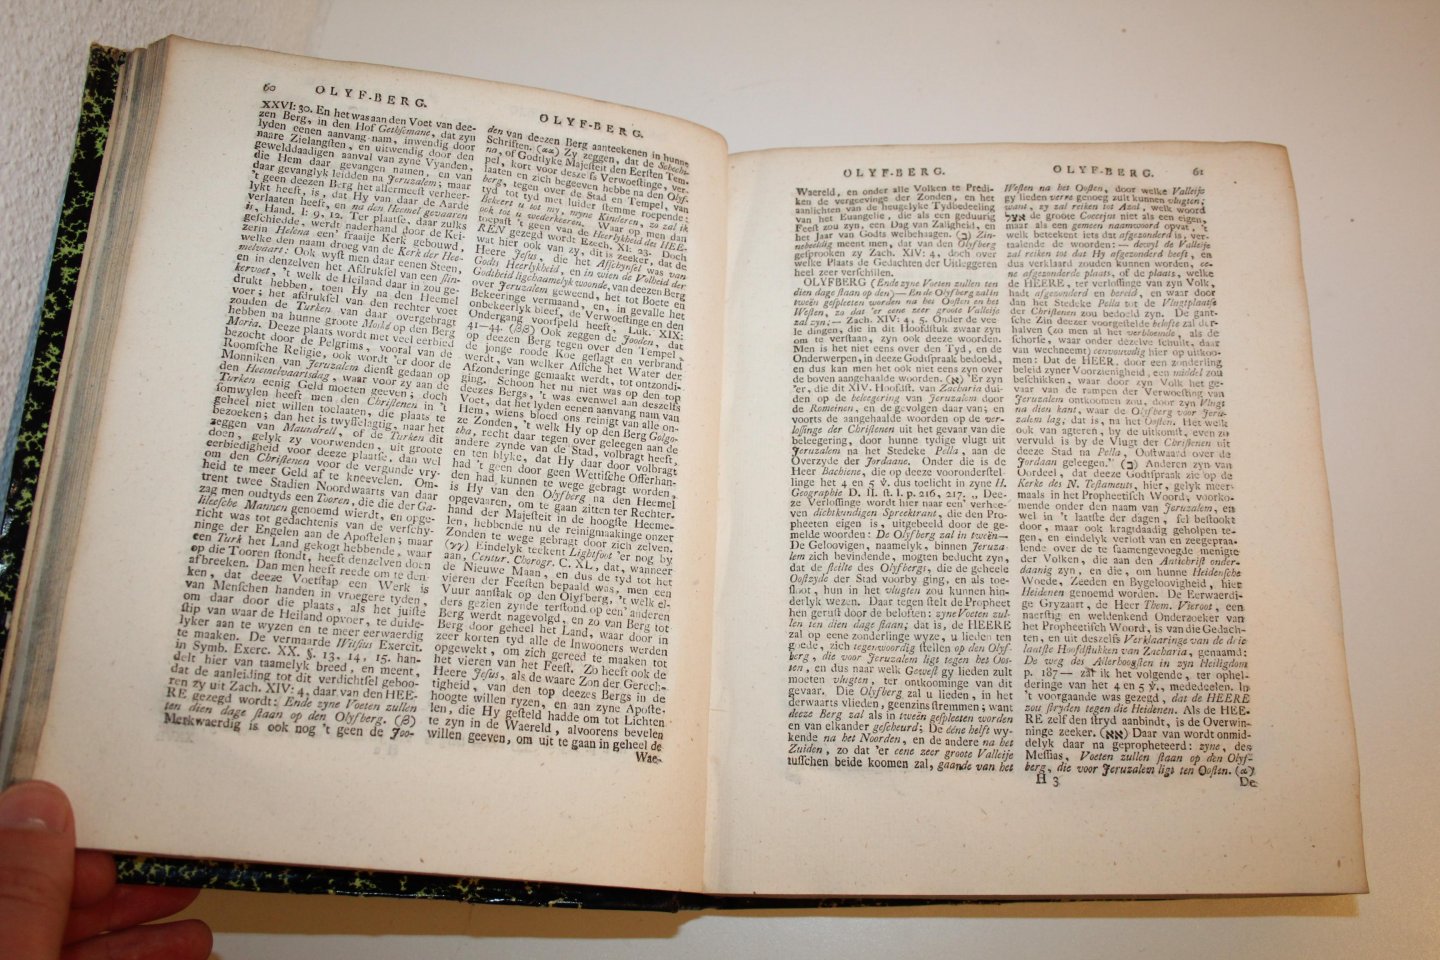 60 OLYF-BERG.
XXVI: 30. En het was aan den Voet van dee-
zen Berg, in den Hof Gethsemane, dat zyn
lyden eenen aanvang nam, inwendig door
naare Zielangsten, en uitwendig door den
gewelddaadigen aanval van zyne Vyanden,
die Hem daar gevangen namen, en van
daar gevanglyk leidden na Jeruzalem; maar
't geen deezen Berg het allermeest verheer-
lykt heeft, is, dat Hy van daar de Aarde
verlaaten heeft, en na den Heemel gevaaren
is, Hand. I: 9, 12. Ter plaatse, daar zulks
geschiedde, werdt naderhand door de Kei-
zerin Helena een' fraaije Kerk gebouwd,
welke den naam droeg van de Kerk der Hee-
melvaart: Ook wyst men daar eenen Steen,
en in denzelven het Afdruksel van een slin-
kervoet, 't welk de Heiland daar in zou ge-
drukt hebben, toen Hy na den Heemel
voer; het afdruksel van den rechter voet
zouden de Turken van daar overgebragt
hebben na hunne groote Moské op den Berg
Moria. Deeze plaats wordt met veel eerbied
bezocht door de Pelgrims, vooral van de
Roomsche Religie, ook wordt 'er door de
Monniken van Jeruzalem dienst gedaan op
den Heemelvaartsdag, waar voor zy aan de
Turken eenig Geld moeten geeven; doch
somwylen heeft men den Christenen in 't
geheel niet willen toelaaten, die plaats te
bezoeken; dan het is twyfelagtig, naar het
zeggen van Maundrell, of de Turken dit
doen, gelyk zy voorwenden, uit groote
eerbiedigheid voor deeze plaatse, dan wel
om den Christenen voor de vergunde vry-
heid te meer Geld af te kneevelen. Om-
trent twee Stadien Noordwaarts van daar
zag men oudtyds een Tooren, die die der Ga-
lileesche Mannen genoemd wierdt, en opge-
richt was tot gedachtenis van de verschy-
ninge der Engelen aan de Apostelen; maar
een Turk het Land gekogt hebbende, waar
op die Tooren stondt, heeft denzelven doen
afbreeken. Dan men heeft reede om te den-
ken, dat deeze Voetstap een Werk is
van Menschen handen in vroegere tyden,
om daar door die plaats, als het juiste
stip van waar de Heiland opvoer, te duide-
lyker aan te wyzen en te meer eerwaardig
te maaken. De vermaarde Witsius Exercit.
in Symb. Exerc. XX. §. 13, 14, 15. han-
delt hier van taamelyk breed, en meent,
dat de aanleiding tot dit verdichtsel geboo-
ren zy uit Zach. XIV: 4, daar van den HEE-
RE gezegd wordt: Ende zyne Voeten zullen
ten dien dage staan op den Olyfberg. (β)
Merkwaerdig is ook nog 't geen de Joo-
OLYF-BERG.
den van deezen Berg aanteekenen in hunne
Schriften. (αα) Zy zeggen, dat de Schechi-
na, of Godtlyke Majesteit den Eersten Tem-
pel, kort voor deszelfs Verwoestinge, ver-
laaten en zich begeeven hebbe na den Olyf-
berg, tegen over de Stad en Tempel, van
tyd tot tyd met luider stemme roepende:
Bekeert u tot my, myne Kinderen, zo zal ik
ook tot u wederkeeren. Waar op men dan
toepast 't geen van de Heerlykheid des HEE-
REN gezegd wordt Ezech. XI: 23. Doch
wat hier ook van zy, dit is zeeker, dat de
Heere Jesus, die het Afschynsel was van
Gods Heerlykheid, en in wien de Volheid der
Godtheid ligchaamelyk woonde, van deezen Berg
over Jeruzalem geweend, het tot Boete en
Bekeeringe vermaand, en, in gevalle het
onbekeerlyk bleef, de Verwoestinge en den
Ondergang voorspeld heeft, Luk. XIX:
41—44. (ββ) Ook zeggen de Jooden, dat
op deezen Berg tegen over den Tempel,
de jonge roode Koe geslagt en verbrand
werdt, van welker Assche het Water der
Afzonderinge gemaakt werdt, tot ontzondi-
ging. Schoon het nu niet was op den top
deezes Bergs, 't was evenwel aan deszelfs
Voet, dat het lyden eenen aanvang nam van
Hem, wiens bloed ons reinigt van alle on-
ze Zonden, 't welk Hy op den Berg Golgo-
tha, recht daar tegen over geleegen aan de
andere zynde van de Stad, volbragt heeft,
en ten blyke, dat Hy daar door volbragt
had 't geen door geen Wettische Offerhan-
den had kunnen te wege gebragt worden,
is Hy van den Olyfberg na den Heemel
opgevaaren, om te gaan zitten ter Rechter-
hand der Majesteit in de hoogste Heeme-
len, hebbende nu de reinigmaakinge onzer
Zonden te wege gebragt door zich zelven.
(γγ) Eindelyk teekent Lightfoot 'er nog by
aan, Centur. Chorogr. C. XL, dat, wanneer
de Nieuwe Maan, en dus de tyd tot het
vieren der Feesten bepaald was, men een
Vuur aanstak op den Olyfberg, 't welk el-
ders gezien zynde terstond op een' anderen
Berg werdt nagevolgd, en zo van Berg tot
Berg door geheel het Land, waar door in
zeer korten tyd alle de Inwooners werden
opgewekt, om zich gereed te maaken tot
het vieren van het Feest. Zo heeft ook de
Heere Jesus, als de waare Zon der Gerech-
tigheid, van den top deezes Bergs in de
hoogte willen ryzen, en aan zyne Aposte-
len, die Hy gesteld hadde om tot Lichten
te zyn in de Waereld, alvoorens bevelen
willen geeven, om uit te gaan in geheel de
Wae-
OLYF-BERG.
Waereld, en onder alle Volken te Predi-
ken de vergeevinge der Zonden, en het
aanlichten van de heugelyke Tydbedeeling
van het Euangelie, die als een geduurig
Feest zou zyn, een Dag van Zaligheid, en
het Jaar van Gods welbehaagen. (ב) Zin-
nebeeldig meent men, dat van den Olyfberg
gesprooken zy Zach. XIV: 4, doch over
welke Plaats de Gedachten der Uitleggeren
heel zeer verschillen.
OLYFBERG (Ende zyne Voeten zullen ten
dien dage staan op den) — En de Olyfberg zal in
tweën gespleeten worden na het Oosten en het
Westen, zo dat 'er eene zeer groote Valleije
zal zyn; — Zach. XIV: 4, 5. Onder de vee-
le dingen, die in dit Hoofdstuk zwaar zyn
om te verstaan, zyn ook deeze woorden.
Men is het niet eens over den Tyd, en de
Onderwerpen, in deeze Godspraak bedoeld,
en dus kan men het ook niet eens zyn over
de boven aangehaalde woorden. (א) 'Er zyn
'er, die dit XIV. Hoofdst. van Zacharia dui-
den op de belegering van Jeruzalem door
de Romeinen, en de gevolgen daar van; en
voorts de aangehaalde woorden op de ver-
lossinge der Christenen uit het gevaar van die
beleegering, door hunne tydige vlugt uit
Jeruzalem na het Stedeke Pella, aan de
Overzyde der Jordaane. Onder die is de
Heer Bachiene, die op deeze vooronderstel-
linge het 4 en 5 ℣. dus toelicht in zyne H.
Geographie D. II. st. I. p. 216, 217. „ Dee-
ze Verlossinge wordt hier naar een' verhee-
ven dichtkundigen Spreektrant, die den Pro-
pheeten eigen is, uitgebeeld door de ge-
melde woorden: De Olyfberg zal in tweën—
De Geloovigen, naamelyk, binnen Jeruza-
lem zich bevindende, mogten beducht zyn,
dat de steilte des Olyfbergs, die de geheele
Oostzyde der Stad voorby ging, en als toe-
sloot, hun in het vlugten zou kunnen hin-
derlyk wezen. Daar tegen stelt de Propheet
hen gerust door de beloften: zyne Voeten zul-
len ten dien dage staan; dat is, de HEERE
zal op eene zonderlinge wyze, u lieden ten
goede, zich tegenwoordig stellen op den Olyf-
berg, die voor Jeruzalem ligt tegen het Oos-
ten, en dus naar welk Gewest gy lieden zult
moeten vlugten, ter ontkominge van dit
gevaar. Die Olyfberg zal u lieden, in het
derwaarts vlieden, geenzins stremmen; want
deeze Berg zal als in tweën gespleeten worden
en van elkander gescheurd; De ééne helft wy-
kende na het Noorden, en de andere na het
Zuiden, zo dat 'er eene zeer groote Valleije
tusschen beide koomen zal, gaande van het
OLYF-BERG. 61
Westen na het Oosten, door welke Valleije
gy lieden verre genoeg zult kunnen vlugten;
want, zy zal reiken tot Azal, welk woord
אצל de groote Coccejus niet als een eigen,
maar als een gemeen naamwoord opvat, 't
welk beteekent iets dat afgezonderd is, ver-
taalende de woorden: — dewyl de Valleije
zal reiken tot dat Hy afgezonderd heeft, en
dus verklaard zouden kunnen worden, ee-
ne afgezonderde plaats, of de plaats, welke
de HEERE, ter verlossinge van zyn Volk,
hadt afgezonderd en bereid, en waar door
dan het Stedeke Pella tot de Vlugtplaatse
der Christenen zou bedoeld zyn. De gant-
sche Zin deezer voorgestelde belofte zal der-
halven (zo men al het verbloemde, als de
schorse, waar onder dezelve schuilt, daar
van wechneemt) eenvouwdig hier op uitkoo-
men: Dat de HEER, door een zonderling
beleid zyner Voorzienigheid, een middel zou
beschikken, waar door zyn Volk het ge-
vaar van de rampen der Verwoesting van
Jeruzalem ontkoomen zou, door zyn Vlugt
na dien kant, waar de Olyfberg voor Jeru-
zalem lag, dat is, na het Oosten. Het welk
ook van agteren, by de uitkomst, even zo
vervuld is by de Vlugt der Christenen uit
deeze Stad na Pella, Oostwaard over de
Jordaan geleegen.” (ב) Anderen zyn van
Oordeel, dat deeze Godspraak zie op de
Kerke des N. Testaments, hier, gelyk meer-
maals in het Prophetisch Woord, voorko-
mende onder den naam van Jeruzalem, en
wel in 't laatste der dagen, fel bestookt
door, maar ook kragtdaadig geholpen te-
gen, en eindelyk verlost van en zeegepraa-
lende over de te saamengevoegde menigte
der Volken, die aan den Antichrist onder-
daanig zyn, en die, om hunne Heidensche
Woede, Zeeden en Bygeloovigheid, hier
Heidenen genoemd worden. De Eerwaerdi-
ge Gryzaart, de Heer Them. Vieroot, een
naerstig en weldenkend Onderzoeker van
het Prophetisch Woord, is van die Gedach-
ten, en uit deszelfs Verklaaringe van de drie
laatste Hoofdstukken van Zacharia, genaamd:
De weg des Allerhoogsten in zyn Heiligdom
p. 187— zal ik het volgende, ter ophel-
deringe van het 4 en 5 ℣., mededeelen. In
't voorgaande was gezegd, dat de HEERE
zou stryden tegen die Heidenen. Als de HEE-
RE zelf den stryd aanbindt, is de Overwin-
ninge zeeker. (אא) Daar van wordt onmid-
delyk daar na gepropheteerd: zyne, des
Messias, Voeten zullen staan op den Olyf-
berg, die voor Jeruzalem ligt ten Oosten. (α)
H 3 De